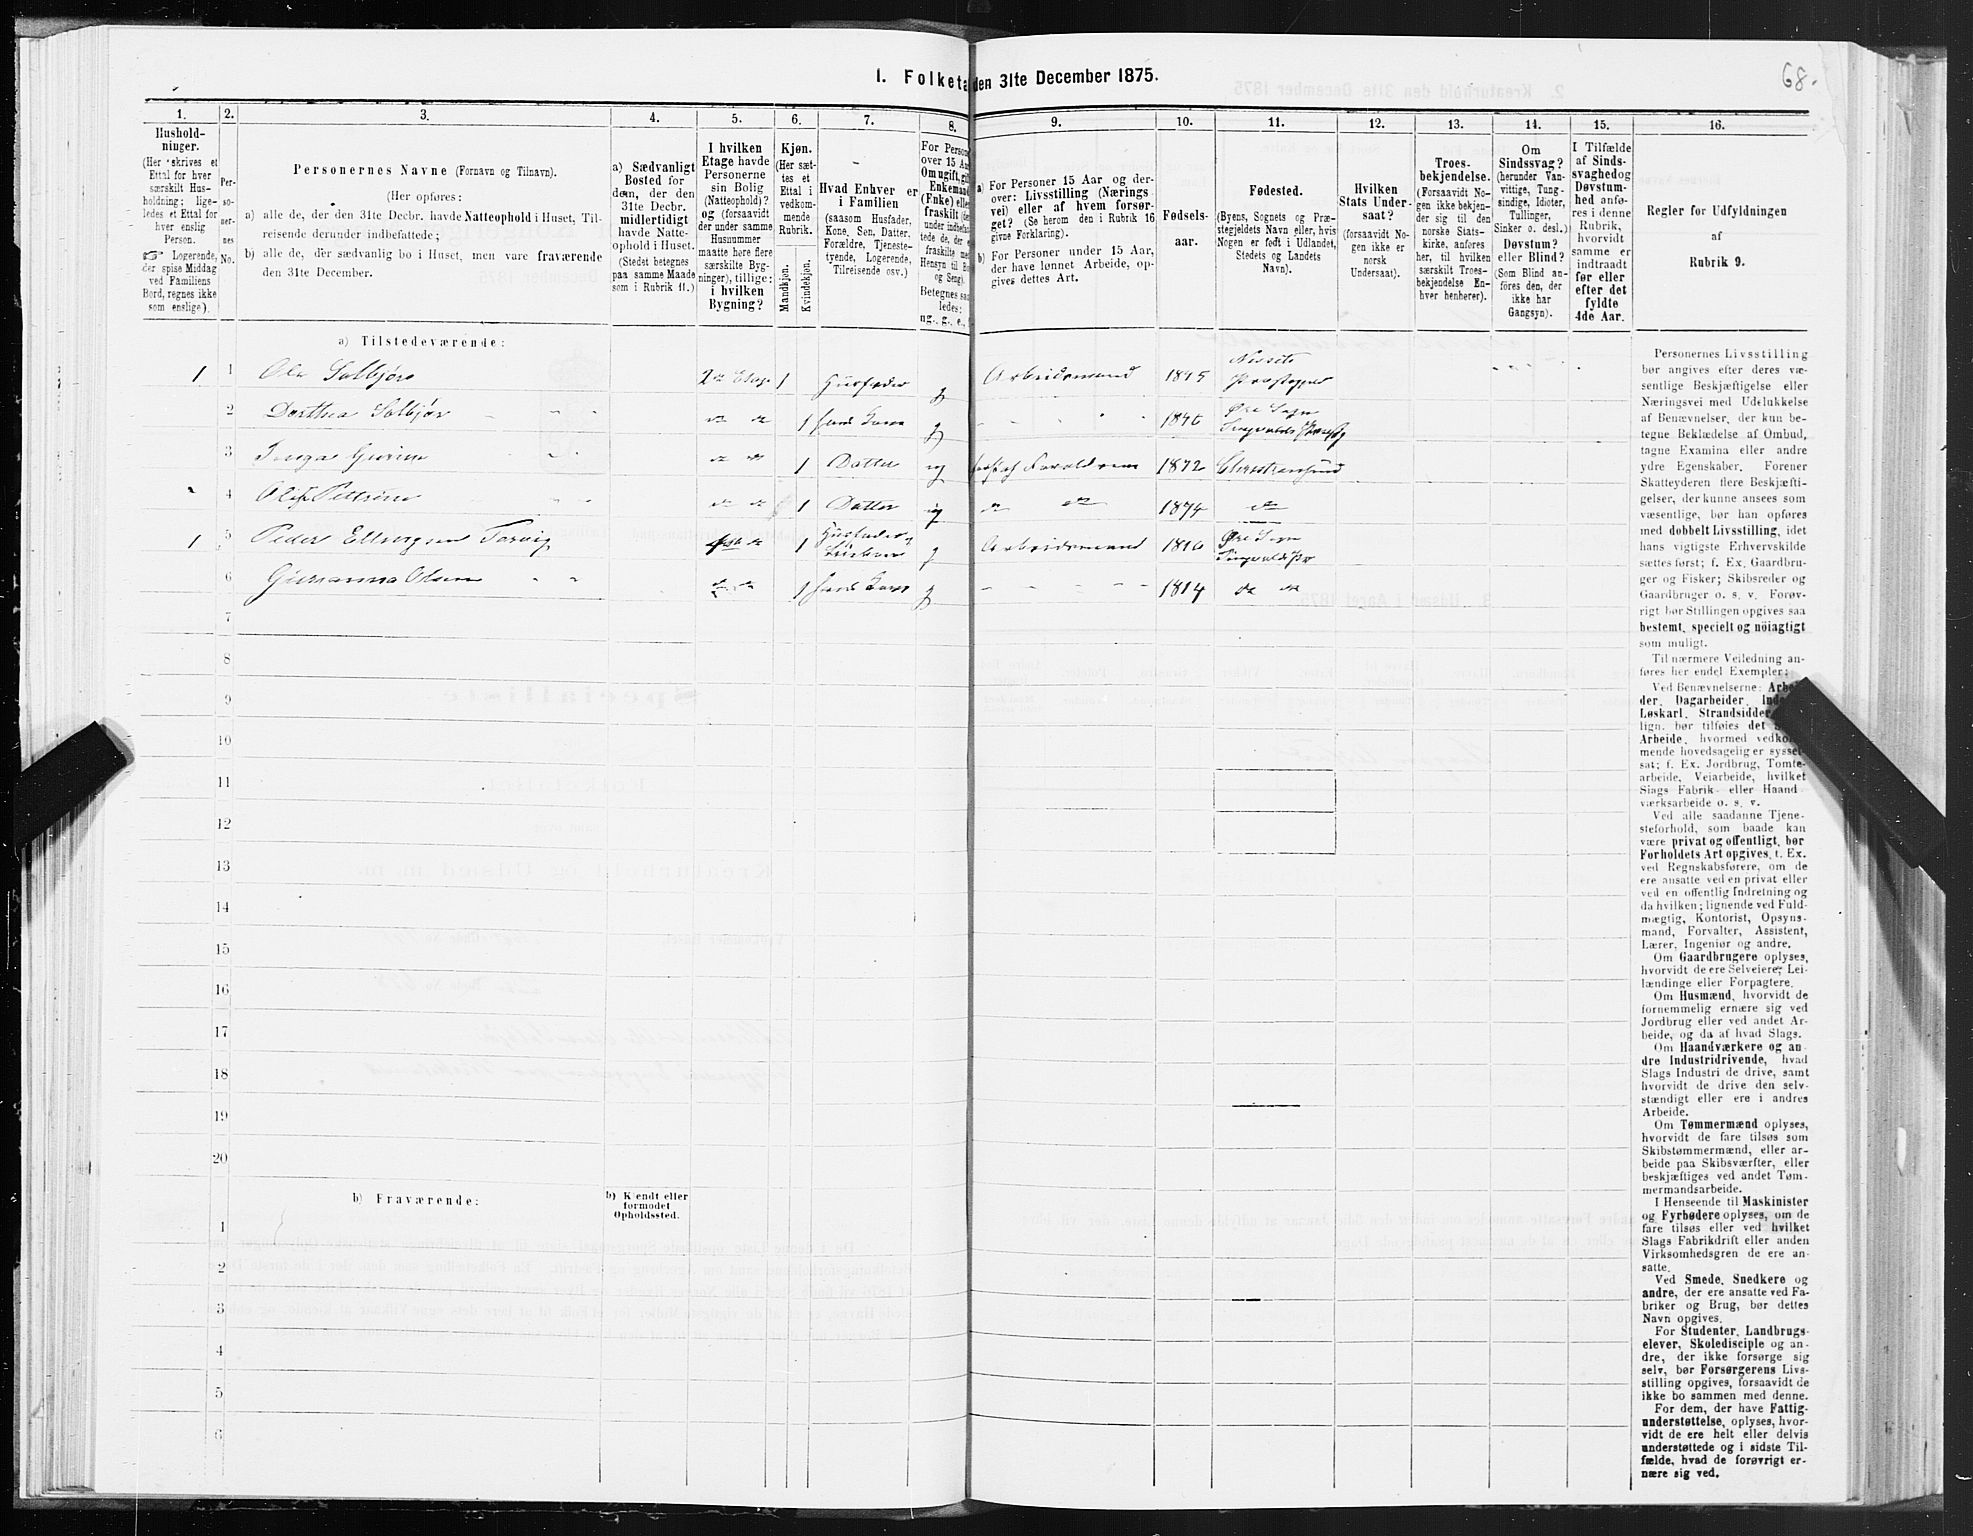 I. Folketa den 31te December 1875.
68.
1.
Hushold-
ninger.
(Her skrives et
Ettal for hver
særskilt Hus-
holdning; lige-
ledes et Ettal for
hver enslig
Person.
☞ Logerende,
der spise Middag
ved Familiens
Bord, regnes ikke
som enslige).
2.
Per-
so-
ner-
nes
No.
3.
Personernes Navne (Fornavn og Tilnavn).
(Her opføres:
a) alle de, der den 31te Decbr. havde Natteophold i Huset, Til-
reisende derunder indbefattede;
b) alle de, der sædvanlig bo i Huset, men vare fraværende
den 31te December.
4.
a) Sædvanligt
Bosted for
dem, der den
31te Decbr.
midlertidigt
havde Natte-
ophold i Huset.
(Stedet betegnes
paa samme Maade
som i Rubrik 11.)
5.
I hvilken
Etage havde
Personerne
sin Bolig
(Natteophold)?
og (forsaavidt
der under samme
Husnummer
maatte høre flere
særskilte Byg-
ninger), tillige:
i hvilken
Bygning?
6.
Kjøn.
(Her sæt-
tes et
Ettal i
vedkom-
mende
Rubrik.
Mandkjøn.
Kvindekjøn.
7.
Hvad Enhver er
i Familien
(saasom Husfader,
Kone, Søn, Datter,
Forældre, Tjeneste-
tyende, Logerende,
Tilreisende osv.)
8.
For Person
over 15 Aa
Om ugift, gift
Enkemand
(Enke) eller
fraskilt
under indbefat-
tede de, der e
fraskilte med
Hensyn til Bo
og Seng).
Betegnes saa-
ledes:
ug., g., e.,
9.
a) For Personer 15 Aar og der-
over: Livsstilling (Nærings-
vei) eller af hvem forsør-
get? (Se herom den i Rubrik 16
givne Forklaring).
b) For Personer under 15 Aar,
der have lønnet Arbeide, op-
gives dettes Art.
10.
Fødsels-
aar.
11.
Fødested.
(Byens, Sognets og Præ-
stegjeldets Navn eller, hvis
Nogen er født i Udlandet,
Stedets og Landets
Navn).
12.
Hvilken
Stats Under-
saat?
(forsaavidt No-
gen ikke er
norsk
Undersaat).
13.
Troes-
bekjendelse.
(Forsaavidt No-
gen ikke bekjen-
der sig til den
norske Stats-
kirke, anføres
her, til hvilken
særskilt Troes-
bekjendelse En-
hver henhører).
14.
Om
Sindssvag?
(herunder Van-
vittige, Tung-
sindige, Idioter,
Tullinger,
Sinker o. desl.)
Døvstum?
eller Blind?
(Som Blind an-
føres den, der
ikke har
Gangsyn).
15.
I Tilfælde
af Sinds-
svaghed og
Døvstum-
hed anfø-
res i denne
Rubrik,
hvorvidt
samme er
indtraadt
før eller
efter det
fyldte
4de Aar.
16.
Regler for Udfyldningen
af
Rubrik 9.
a) Tilstedeværende:
1 1 Ole Solbjør 2den Etage 1 Husfader g Arbeidsmand 1845 Nessete Præstegjeld
2 Dorthea Solbjør do do 1 hans Kone g 1840 Øre Sogn
3 Inga Gurine do do 1 Datter ug fors af Forældrene 1872 Christiansund
4 Petrine do do 1 Datter ug do do 1874 do
1 5 Peder do 1 Husfader g Arbeidsmand 1810 Øre Sogn
6 Olsen do do 1 hans Kone g 1814 do do
7
8
9
10
11
12
13
14
15
16
17
18
19
20
b) Fraværende:
b) Kjendt eller
formodet
Opholdssted.
1
2
3
4
5
6
Personernes Livsstilling
bør angives efter deres væ-
sentlige Beskjæftigelse eller
Næringsvei med Udelukkelse
af Benævnelser, der kun be-
tegne Beklædelse af Ombud,
tagne Examina eller andre
ydre Egenskaber. Forener
Skatteyderen flere Beskjæfti-
gelser, der kunne ansees som
væsentlige, bør han opføres
med dobbelt Livsstilling, idet
hans vigtigste Erhvervskilde
sættes først; f. Ex. Gaardbru-
ger og Fisker; Skibsreder og
Gaardbruger o. s. v. Forøv-
rigt bør Stillingen opgives saa
bestemt, specielt og nöiagtigt
som muligt.
Til nærmere Veiledning an-
føres her endel Exempler:
Ved Benævnelserne: Arbei-
der, Dagarbeider, Inder
Løskarl, Strandsidder
lign. bør tilføies det S
Arbeide, hvormed vedkom-
mende hovedsagelig er syssel-
sat; f. Ex. Jordbrug, Tomte-
arbeide, Veiarbeide, hvilket
Slags Fabrik- eller Haand-
værksarbeide o. s. v.
Ved alle saadanne Tjene-
steforhold, som baade kan
være privat og offentligt, bør
Forholdets Art opgives, t. Ex.
ved Regnskabsførere, om de
ere ansatte ved en privat eller
ved en offentlig Indretning og
da hvilken; lignende ved Fuld-
mægtig, Kontorist, Opsyns-
mand, Forvalter, Assistent,
Lærer, Ingeniør og andre.
Om Gaardbrugere oplyses,
hvorvidt de ere Selveiere, Lei-
lændinge eller Forpagtere.
Om Husmænd, hvorvidt de
fornemmelig ernære sig ved
Jordbrug eller ved andet Ar-
beide, og da af hvad Slags.
Om Haandværkere og an-
dre Industridrivende, hvad
Slags Industri de drive, samt
hvorvidt de drive den selv-
stændigt eller ere i andres
Arbeide.
Om Tømmermænd oplyses,
hvorvidt de fare tilsøs som
Skibstømmermænd, eller ar-
beide paa Skibsværfter, eller
beskjæftiges ved andet Tøm-
mermandsarbeide.
I Henseende til Maskinister
og Fyrbødere oplyses, om de
fare tilsøs eller ved hvilket
Slags Fabrikdrift eller anden
Virksomhedsgren de ere an-
satte.
Ved Smede, Snedkere og
andre, der ere ansatte ved Fa-
briker og Brug, bør dettes
Navn opgives.
For Studenter, Landbrugs-
elever, Skoledisciple og an-
dre, der ikke forsørge sig
selv, bør Forsørgerens Livs-
stilling opgives, forsaavidt de
ikke bo sammen med denne.
For dem, der have Fattig-
understøttelse, oplyses, hvor-
vidt de ere helt eller delvis
understøttede og i sidste Til-
fælde, hvad de forøvrigt er-
nære sig ved.